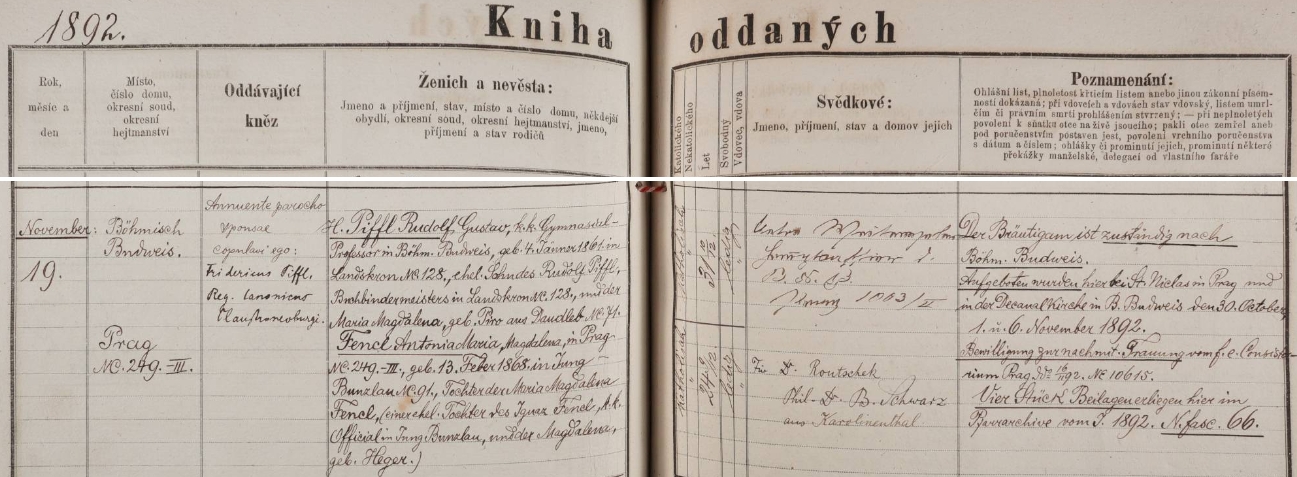 1892.
Kniha oddaných
Rok,
měsíc a
den
Místo,
číslo domu,
okresní soud,
okresní
hejtmanství
Oddávající
kněz
Ženich a nevěsta:
Jmeno a příjmení, stav, místo a číslo domu, někdejší
obydlí, okresní soud, okresní hejtmanství, jmeno,
příjmení a stav rodičů
Katolického
Nekatolického
Let
Svobodný
Vdovec, vdova
Svědkové:
Jmeno, příjmení, stav a domov jejich
Poznamenání:
Ohlášní list, plnoletost křticím listem anebo jinou zákonní písem-
ností dokázaná; při vdovcích a vdovách stav vdovský, listem umrl-
čím či právním smrti prohlášením stvrzený; — při neplnoletých
povolení k sňatku otce na živě jsoucího; pakli otec zemřel aneb
pod poručenstvím postaven jest, povolení vrchního poručenstva
s dátum a číslem; ohlášky či prominutí jejich, prominutí některé
překážky manželské, delegací od vlastního faráře
November:
19.
Böhmisch
Budweis.
Prag
NC. 249.-III.
Annuente parocho
sponsae
copulavi ego:
Fridericus Piffl,
Reg. Canonicus
Claustroneoburgi.
H. Piffl Rudolf Gustav, k.k. Gymnasial-
Professor in Böhm. Budweis, geb. 4. Jänner 1861 in
Landskron NC 128., ehel. Sohn des Rudolf Piffl,
Buchbindermeisters in Landskron NC. 128., und der
Maria Magdalena, geb. Piro aus Daudleb NC. 71.
Fencl Antonia Maria, Magdalena, in Prag
NC. 249-III., geb. 13. Feber 1868. in Jung-
Bunzlau NC. 91., Tochter der Maria Magdalena
Fencl, (einer ehel. Tochter des Ignaz Fencl, k.k.
Official in Jung Bunzlau, und der Magdalena,
geb. Heger.)
katholisch
31 10/12
ledig
katholisch
24 9/12
ledig
1863
Für D. Koutschek
Phil. D. B. Schwarz
aus Karolinenthal
Der Bräutigam ist zuständig nach
Böhm. Budweis.
Aufgeboten wurden hier bei St. Niclas in Prag und
in der Decanalkirche in B. Budweis den 30. October,
1. u. 6. November 1892.
Bewilligung zur nachmit. Trauung vom f. e. Consisto-
rium Prag ddto 16/11 92. NC 10615.
Vier Stück Beilagen erliegen hier im
Pfarrarchive vom J. 1892. N. fasc. 66.